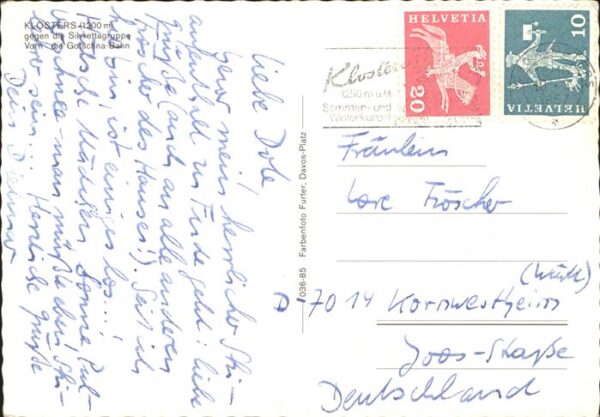 KLOSTERS (1200 m)
gegen die Silvrettagruppe
Vorn: die Gotschna-Bahn
Liebe Dole
bevor mein herrlicher Ski-
aufenthalt zu Ende geht: liebe
Grüße (auch an alle anderen
Töchter des Hauses!). Seit ich
hier bin, ist einiges los...!
Sonne Pul-
verschnee - man müßte eben Ski-
sein... Herzliche Grüße
Dein
036-85 Farbenfoto Furter, Davos-Platz
HELVETIA
20
HELVETIA
10
Klosters
1250 m ü M
Sommer- und
Winterkurort
Fräulein
Lore Fröscher
(Württ)
D-7014 Kornwestheim
Joos-Straße
Deutschland